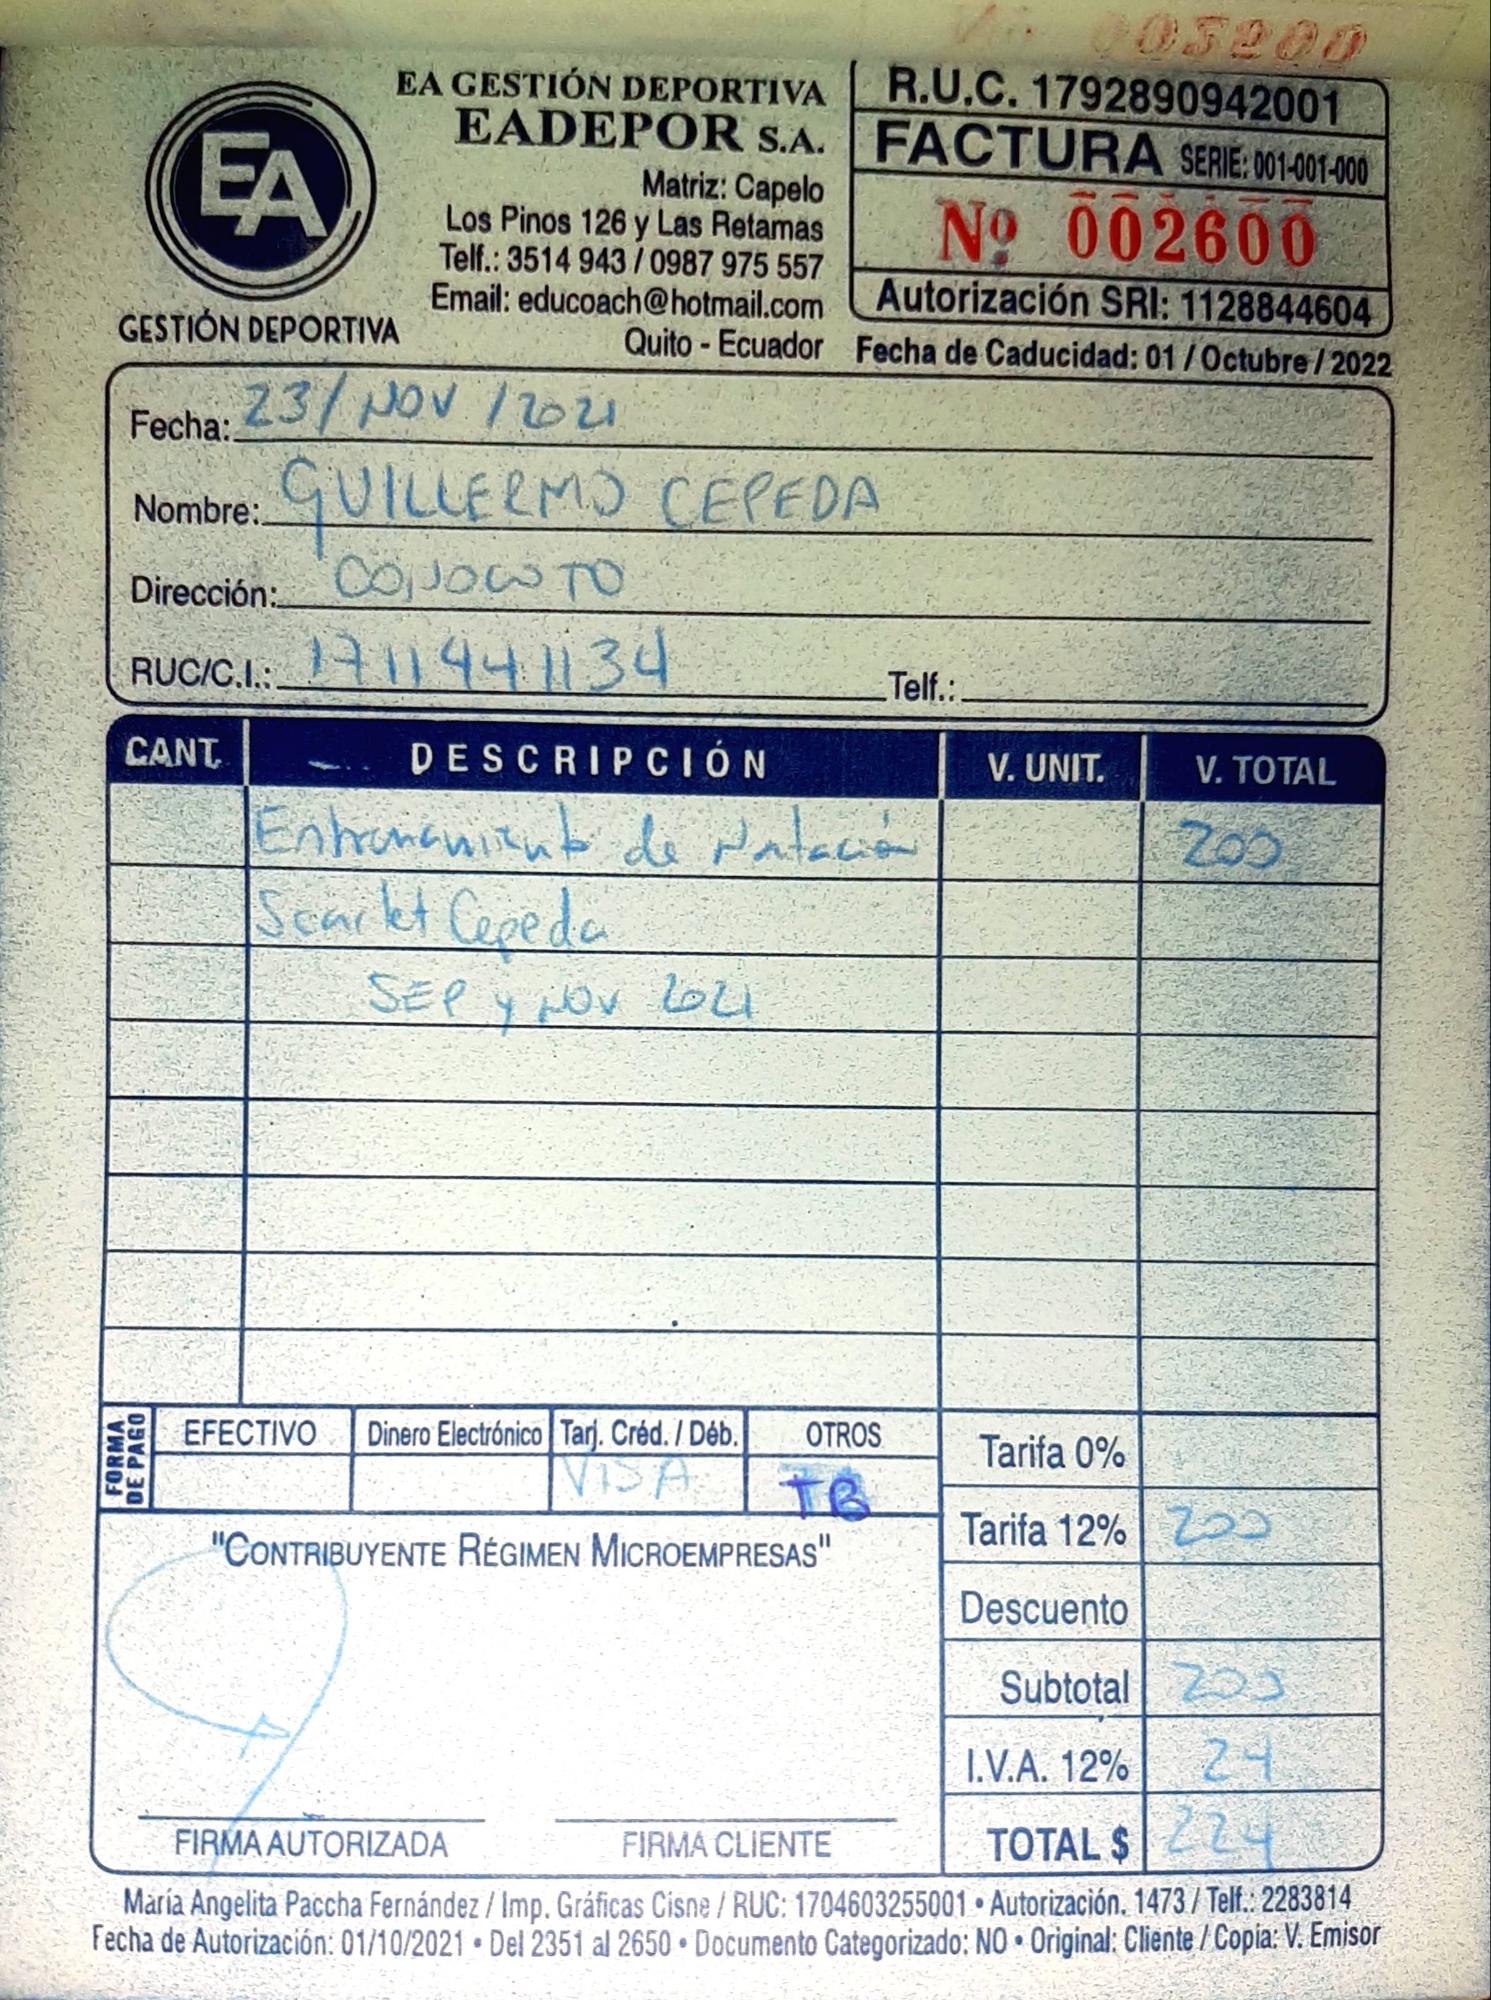 Nº 005200
EA GESTIÓN DEPORTIVA
EADEPOR S.A.
Matriz: Capelo
Los Pinos 126 y Las Retamas
Telf.: 3514 943 / 0987 975 557
Email: educoach@hotmail.com
Quito - Ecuador
EA
GESTIÓN DEPORTIVA
R.U.C. 1792890942001
FACTURA SERIE: 001-001-000
Nº 002600
Autorización SRI: 1128844604
Fecha de Caducidad: 01 / Octubre / 2022
Fecha: 23/NOV/2021
Nombre: GUILLERMO CEPEDA
Dirección: CONOCOTO
RUC/C.I.: 1711441134 Telf.:
CANT. DESCRIPCIÓN V. UNIT. V. TOTAL
Entrenamiento de Natación 200
Scarlet Cepeda
SEP y NOV 2021
FORMA DE PAGO
EFECTIVO Dinero Electrónico Tarj. Créd. / Déb. OTROS
VISA TB
Tarifa 0%
Tarifa 12% 200
Descuento
Subtotal 200
I.V.A. 12% 24
TOTAL $ 224
"CONTRIBUYENTE RÉGIMEN MICROEMPRESAS"
FIRMA AUTORIZADA FIRMA CLIENTE
María Angelita Paccha Fernández / Imp. Gráficas Cisne / RUC: 1704603255001 • Autorización. 1473 / Telf.: 2283814
Fecha de Autorización: 01/10/2021 • Del 2351 al 2650 • Documento Categorizado: NO • Original: Cliente / Copia: V. Emisor